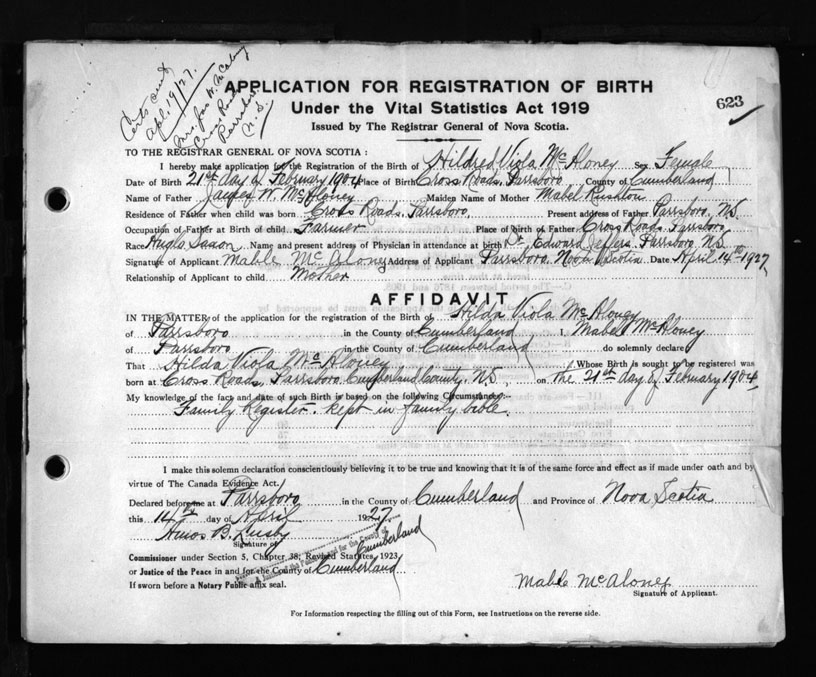 Certs sent
Apl. 19/27.
Mrs Jas. W. McAloney
Cross Roads
Parrsboro
N. S.
623
APPLICATION FOR REGISTRATION OF BIRTH
Under the Vital Statistics Act 1919
Issued by The Registrar General of Nova Scotia.
TO THE REGISTRAR GENERAL OF NOVA SCOTIA :
I hereby make application for the Registration of the Birth of Hildred Viola McAloney Sex Female
Date of Birth 21st day of February 1904 Place of Birth Cross Roads, Parrsboro County of Cumberland
Name of Father James W. McAloney Maiden Name of Mother Mabel Rushton
Residence of Father when child was born Cross Roads, Parrsboro. Present address of Father Parrsboro, N.S.
Occupation of Father at Birth of child Farmer Place of birth of Father Cross Roads, Parrsboro
Race Anglo Saxon Name and present address of Physician in attendance at birth Dr. Edward Jeffers, Parrsboro, N.S.
Signature of Applicant Mable McAloney Address of Applicant Parrsboro, Nova Scotia Date April 14th 1927
Relationship of Applicant to child Mother
AFFIDAVIT
IN THE MATTER of the application for the registration of the Birth of Hilda Viola McAloney
of Parrsboro in the County of Cumberland I, Mabel McAloney
of Parrsboro in the County of Cumberland do solemnly declare
That Hilda Viola McAloney Whose Birth is sought to be registered was
born at Cross Roads, Parrsboro, Cumberland County, N.S. on the 21st day of February 1904
My knowledge of the fact and date of such Birth is based on the following Circumstances:-
Family Register. kept in family bible.
I make this solemn declaration conscientiously believing it to be true and knowing that it is of the same force and effect as if made under oath and by
virtue of The Canada Evidence Act.
Declared before me at Parrsboro in the County of Cumberland and Province of Nova Scotia
this 14th day of April 1927
Amos B. Lusby
Signature of
Commissioner under Section 5, Chapter 38, Revised Statutes, 1923
or Justice of the Peace in and for the County of Cumberland
If sworn before a Notary Public affix seal.
for the County of
Cumberland
Mable McAloney
Signature of Applicant.
For Information respecting the filling out of this Form, see Instructions on the reverse side.